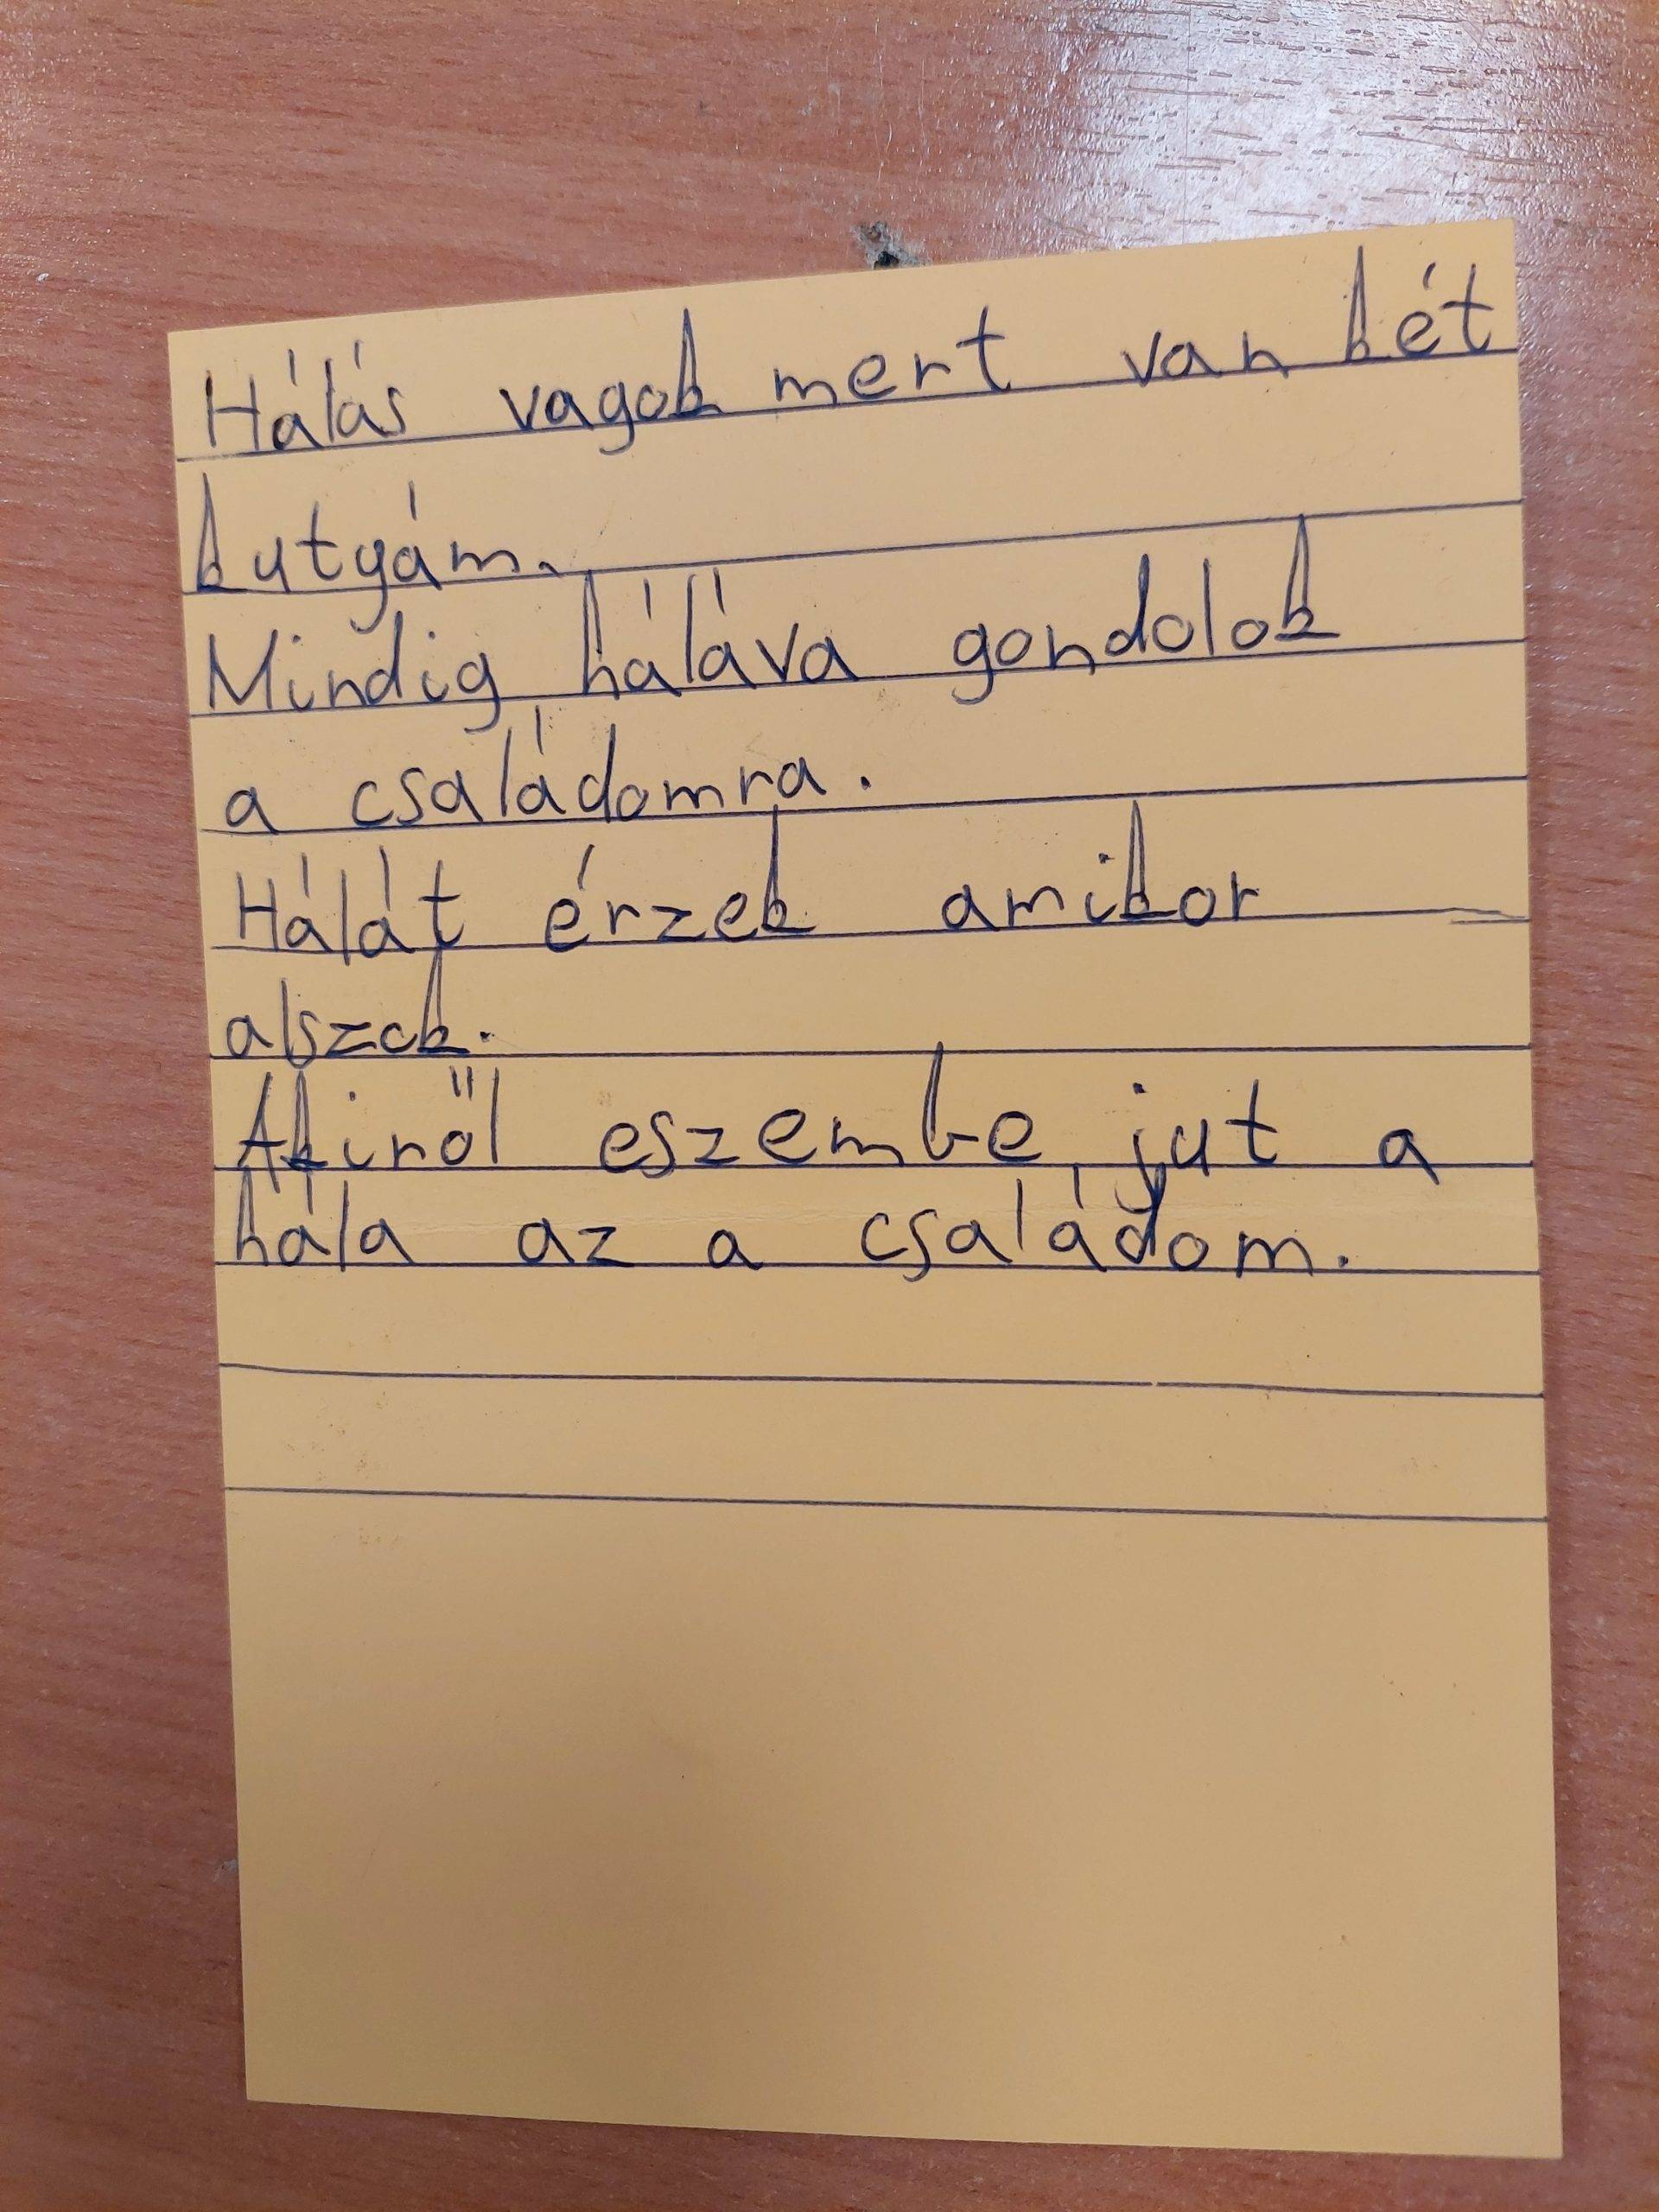 Hálás vagok mert van két
kutyám.
Mindig háláva gondolok
a családomra.
Hálát érzek amikor
alszok.
Akiről eszembe jut a
hála az a családom.